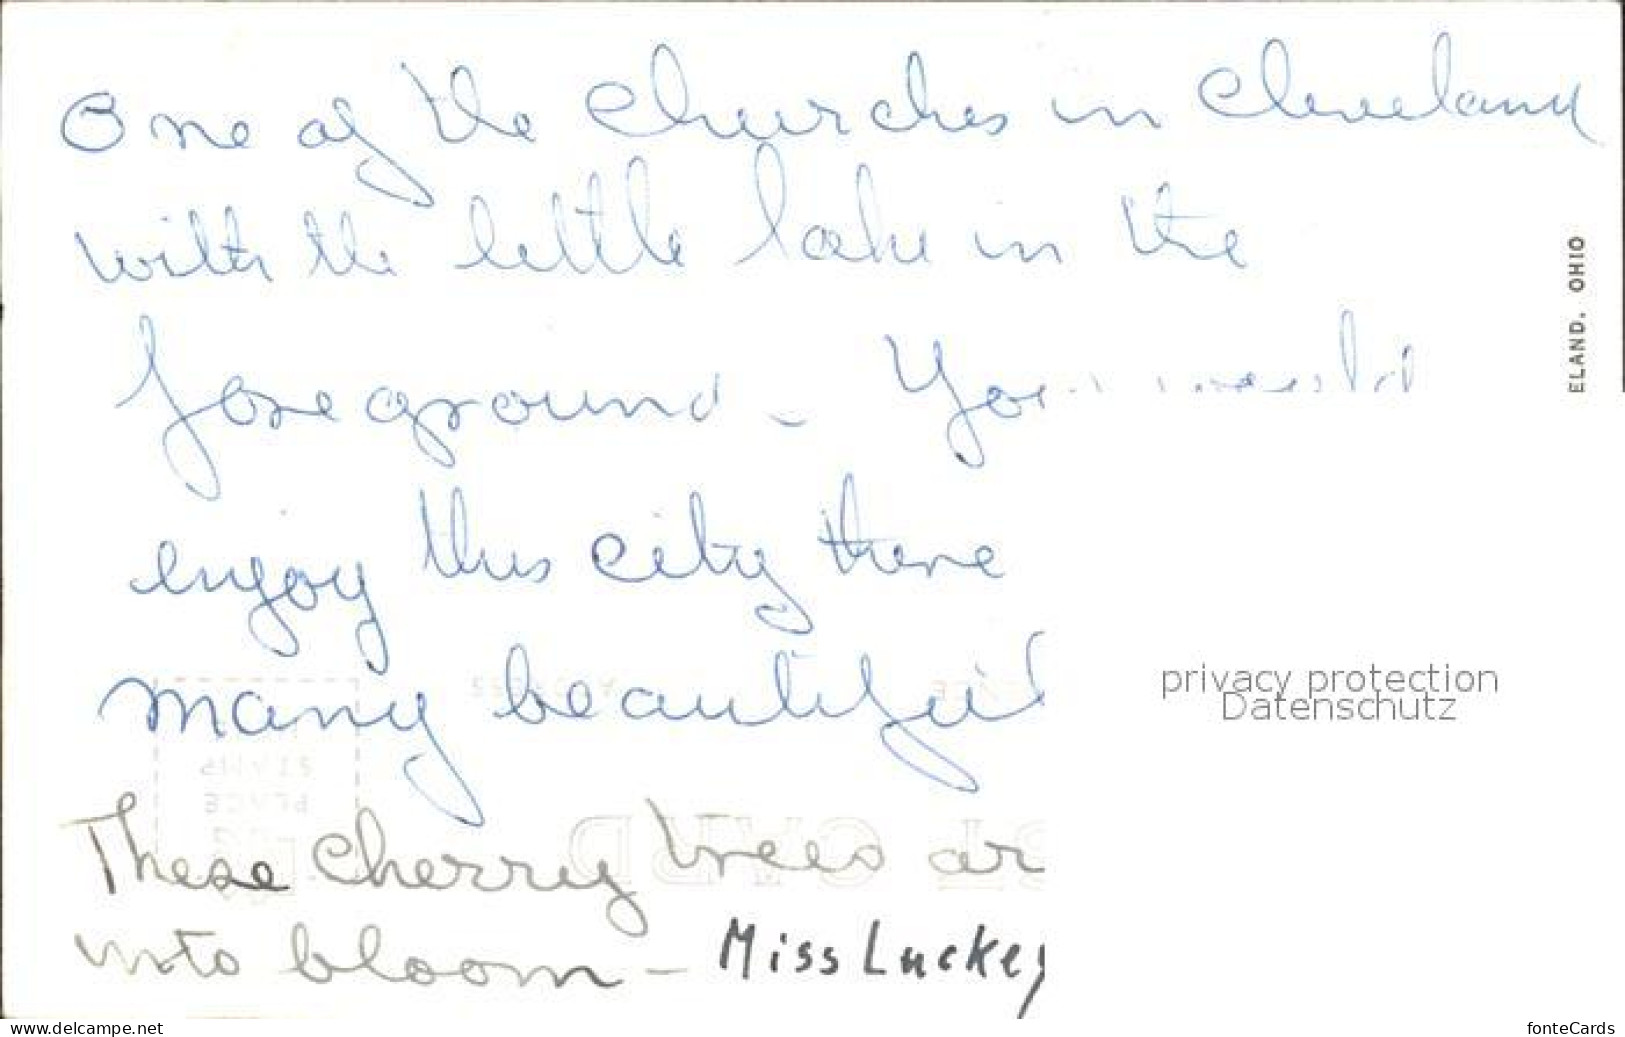 One of the Churches in Cleveland
with the little lake in the
foreground - You would
enjoy this city there
many beautiful
These cherry trees ar
into bloom - Miss Luckey
ELAND, OHIO
privacy protection
Datenschutz
STAMP
PLACE
www.delcampe.net
fonteCards